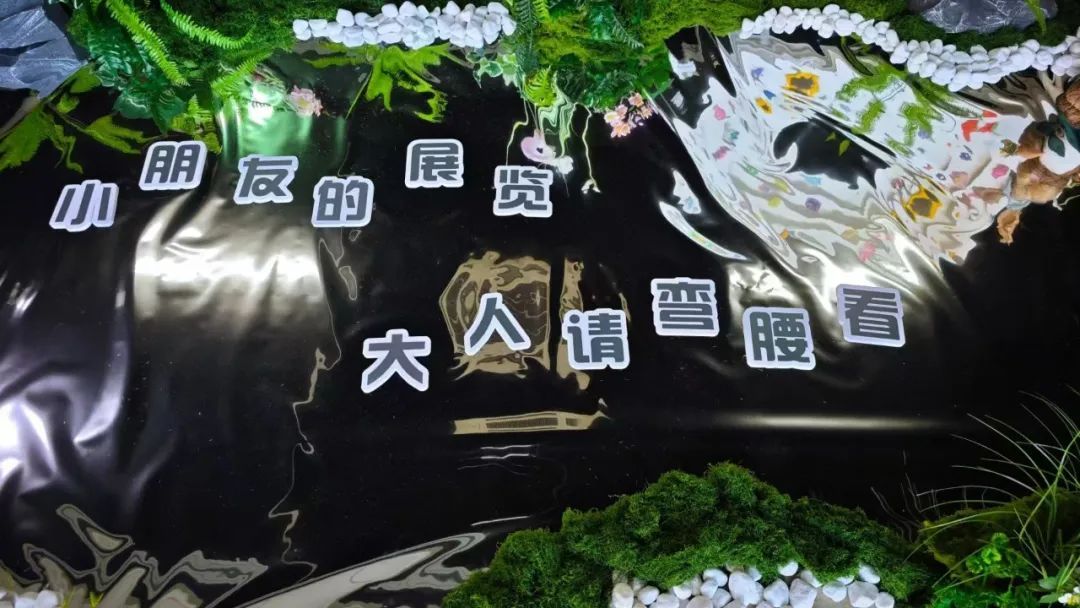 小朋友的展览
大人请弯腰看